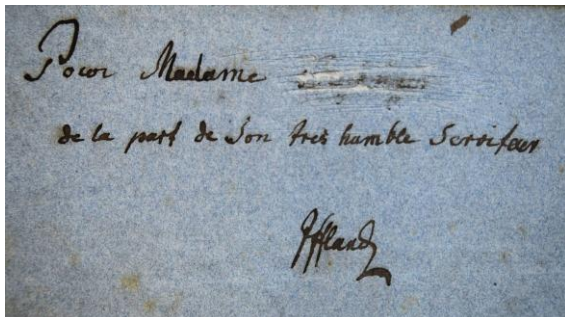 Pour Madame
de la part de Son tres humble Serviteur
Iffland